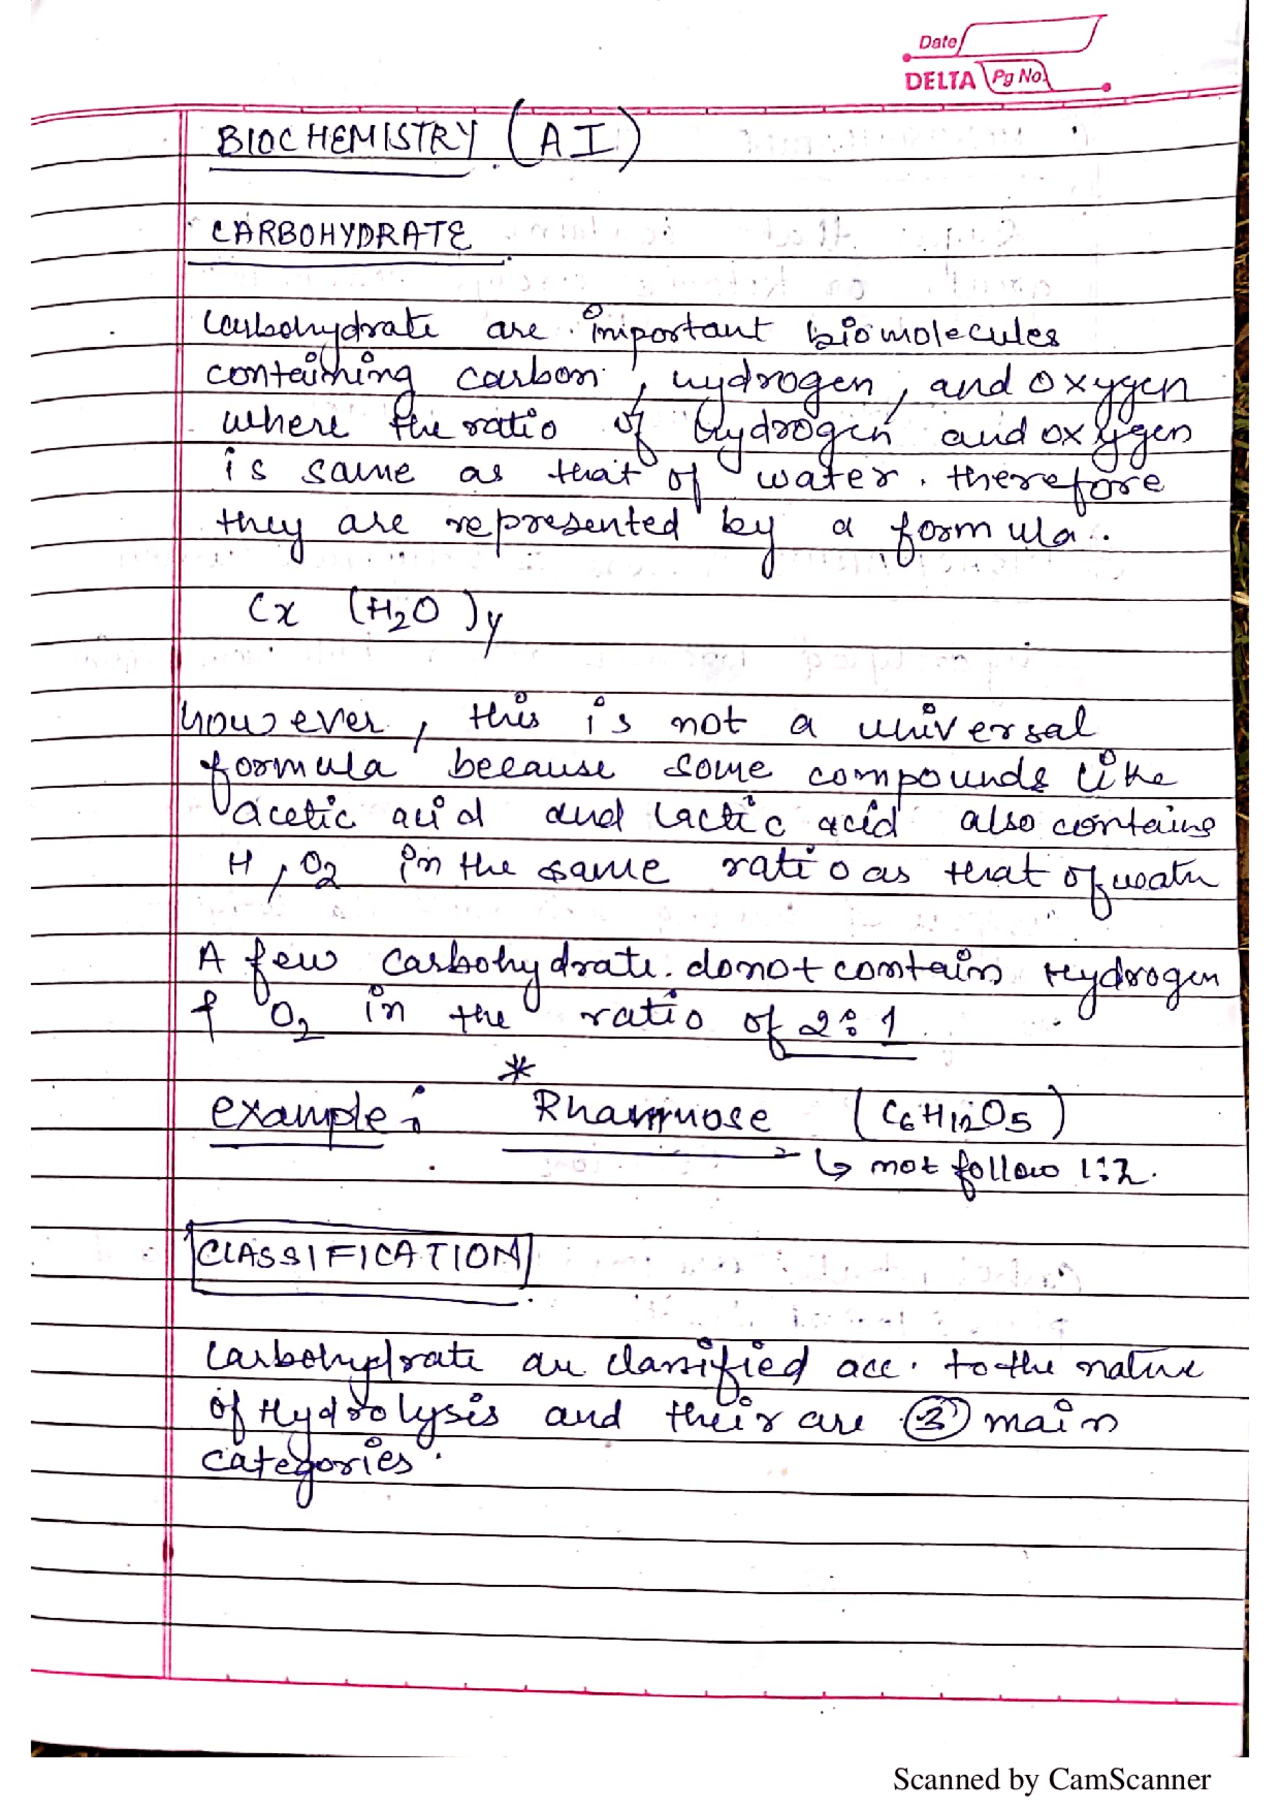 Date
DELTA Pg No.
BIOCHEMISTRY (AI)
CARBOHYDRATE
Carbohydrate are important biomolecules
containing carbon, hydrogen, and oxygen
where the ratio of hydrogen and oxygen
is same as that of water. therefore
they are represented by a formula.
Cx (H2O)y
however, this is not a universal
formula because some compounds like
acetic acid and lactic acid also contains
H, O2 in the same ratio as that of water
A few carbohydrate. donot contains Hydrogen
& O2 in the ratio of 2:1
*
example: Rhamnose (C6H12O5)
↳ not follow 1:2.
CLASSIFICATION
Carbohydrate are classified acc. to the nature
of Hydrolysis and their are 3 main
categories.
Scanned by CamScanner